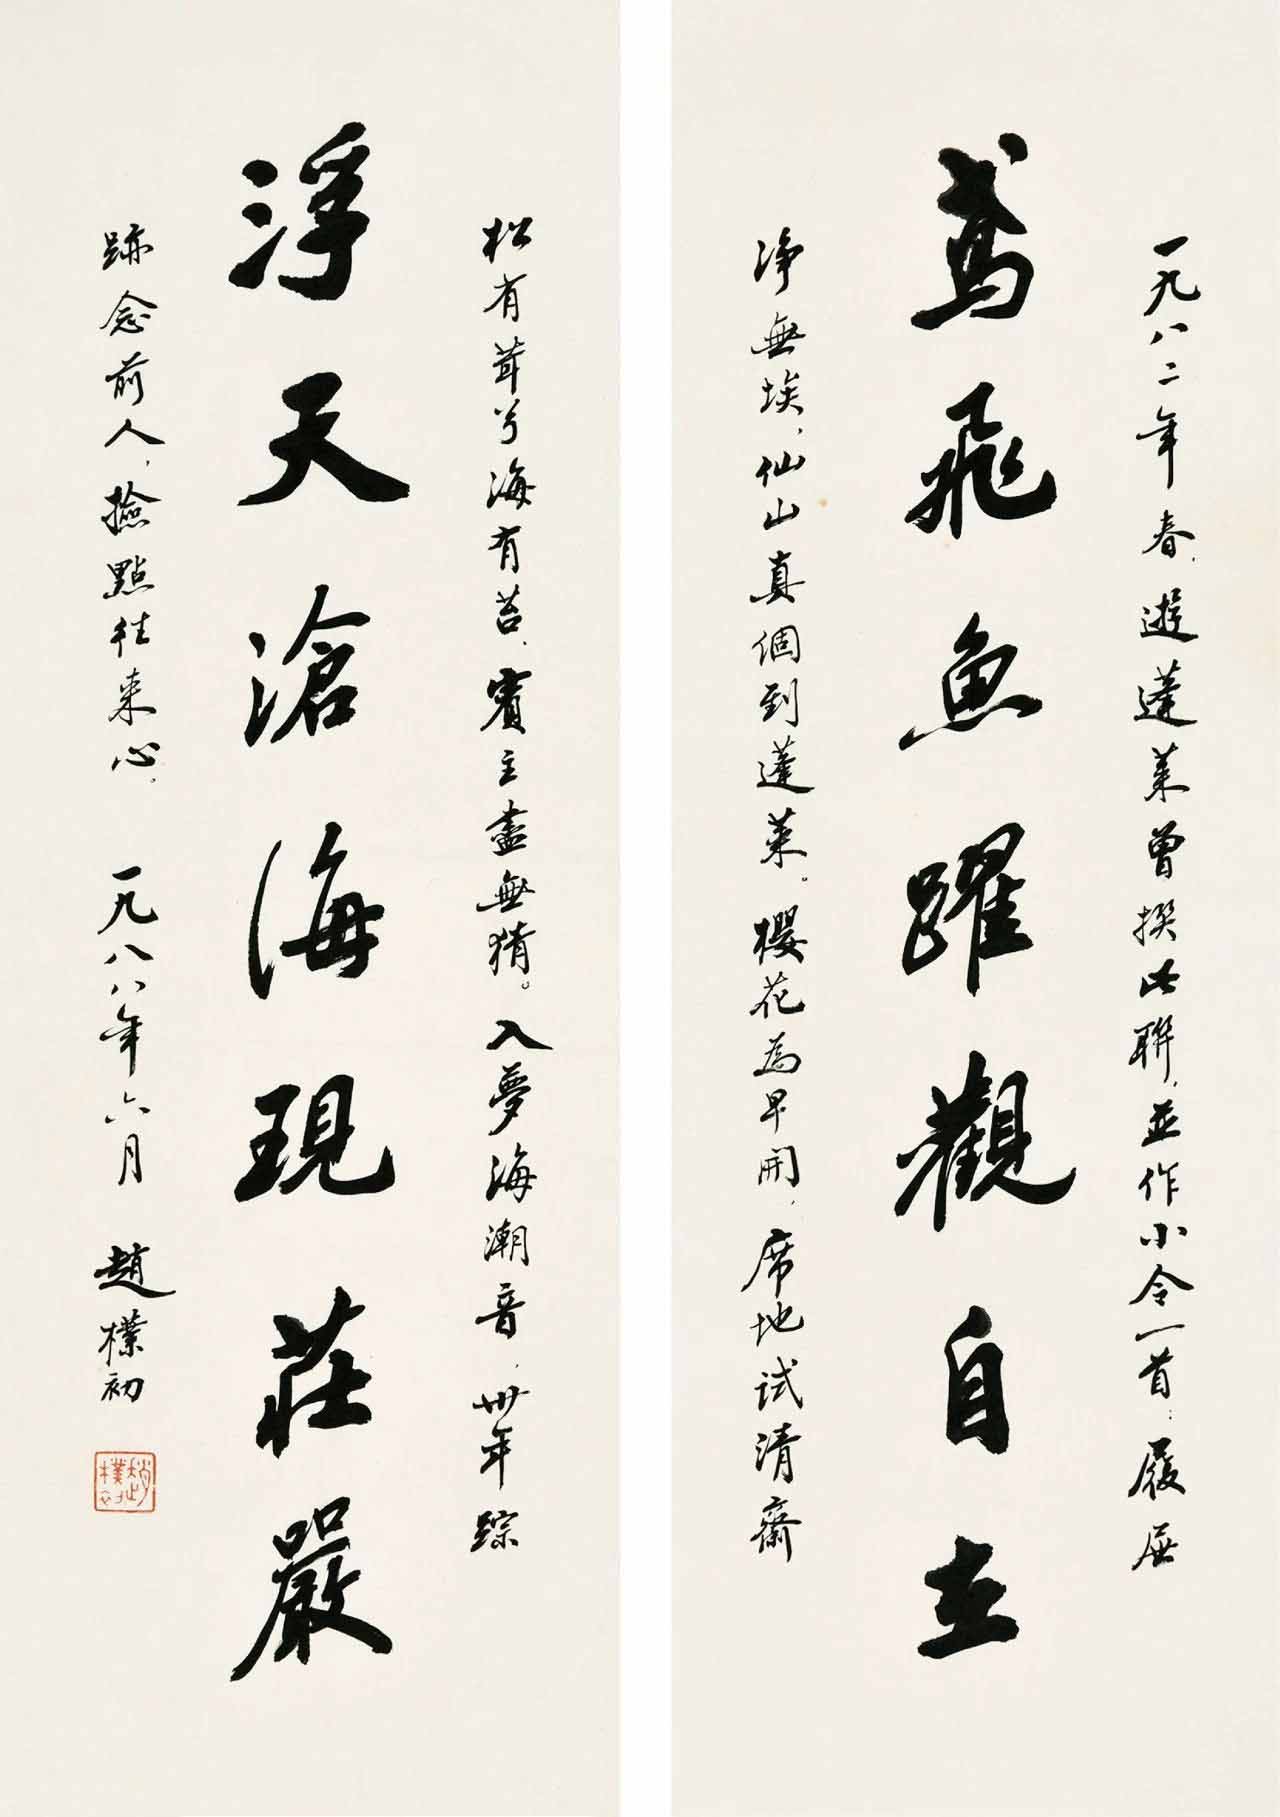 一九八二年春，遊蓬莱曾撰此聯，並作小令一首：履屐
鳶飛魚躍觀自在
净無埃，仙山真個到蓬莱。櫻花為早開，席地試清齋
松有茸兮海有苔，賓主盡無猜。入夢海潮音，卅年踪
浮天滄海現莊嚴
跡念前人，撿點往来心。一九八八年六月 趙樸初
趙樸初